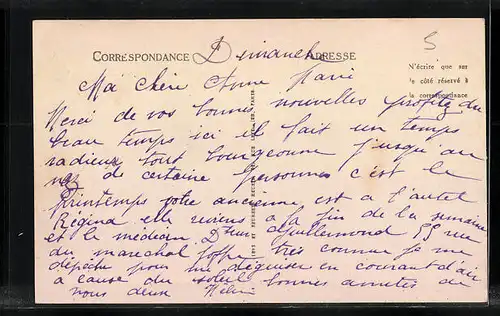 CORRESPONDANCE
ADRESSE
N'écrire que sur
le côté réservé à
la correspondance
5
Dimanche
Ma chère Anne Marie
Merci de vos bonnes nouvelles profitez du
beau temps ici il fait un temps
radieux tout bourgeonne jusqu'au
nez de certaine personnes c'est le
printemps votre ancienne est a l'autel
Régina elle reviens a la fin de la semaine
et le médecin Dteur Guillemond 55 rue
du marechal joffre très connu je me
dépêche pour me déguiser en courant d'air
a cause du soleil bonnes amitiés de
nous deux